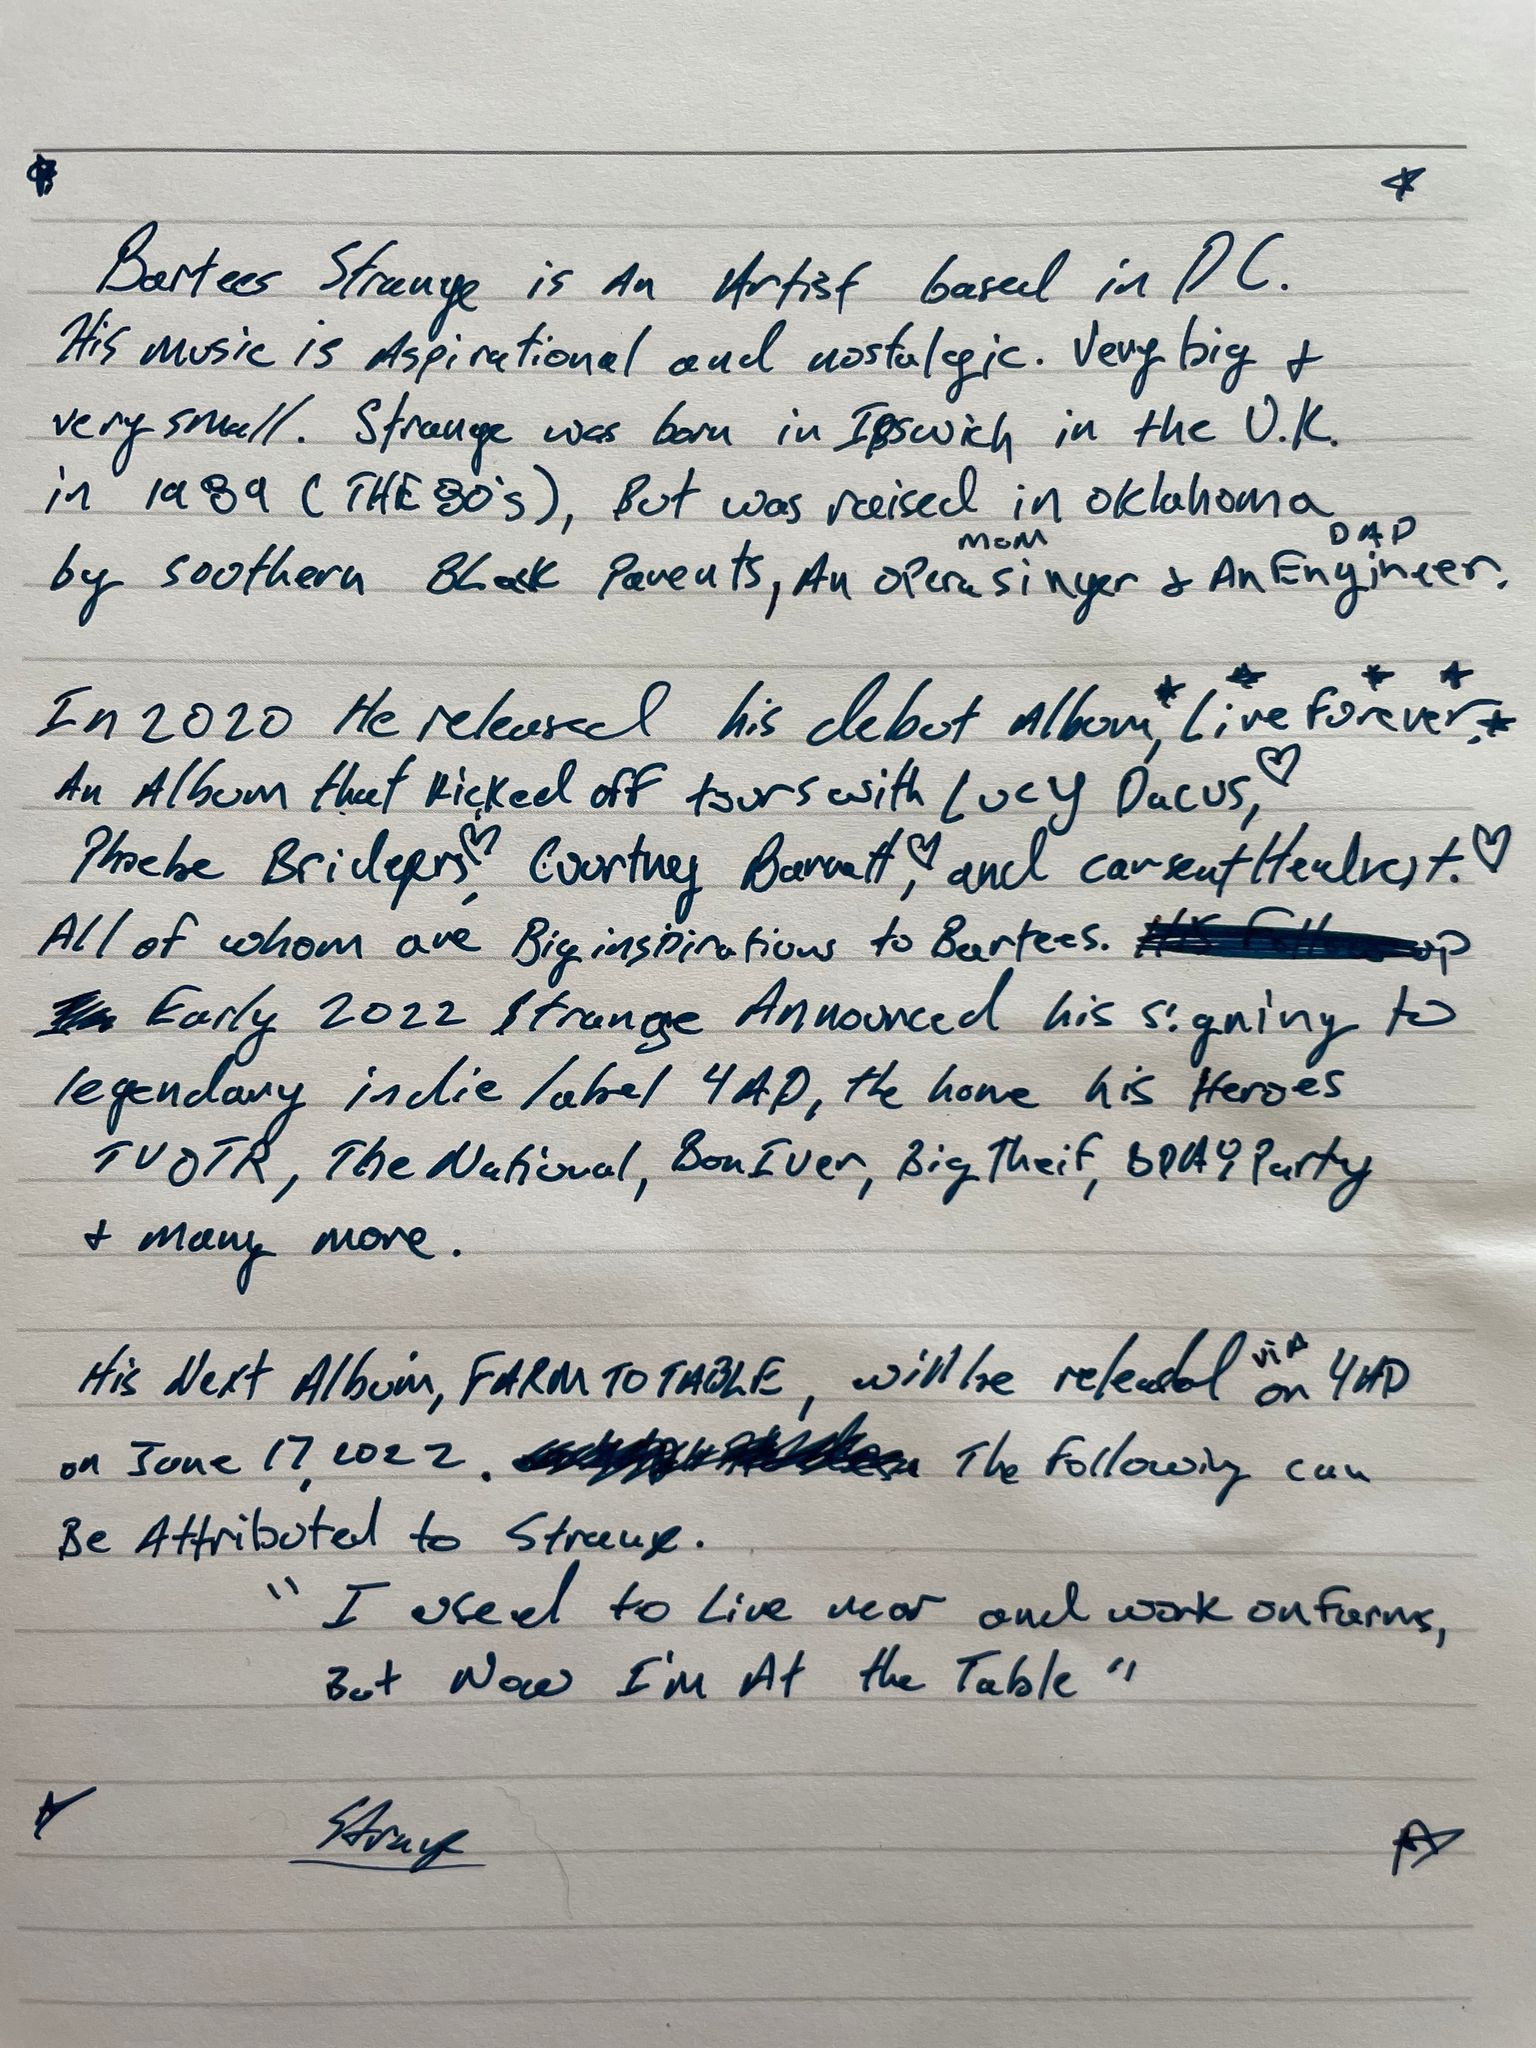 Bartees Strange is An Artist based in DC.
His music is Aspirational and nostalgic. Very big &
very small. Strange was born in Ipswich in the U.K.
in 1989 (THE 80's), But was raised in Oklahoma
mom DAD
by southern Black Parents, An opera singer & An Engineer.
In 2020 He released his debut Album, Live Forever.
An Album that kicked off tours with Lucy Dacus,
Phoebe Bridgers, Courtney Barnett, and carseat Headrest.
All of whom are Big inspirations to Bartees. His Follow up
Early 2022 Strange Announced his signing to
legendary indie label 4AD, the home his Heroes
TVOTR, The National, Bon Iver, Big Theif, Party
& many more.
via
His Next Album, FARM TO TABLE, will be released on 4AD
on June 17, 2022. The following can
Be Attributed to Strange.
" I used to Live near and work on Farms,
But Now I'm At the Table "
Strange